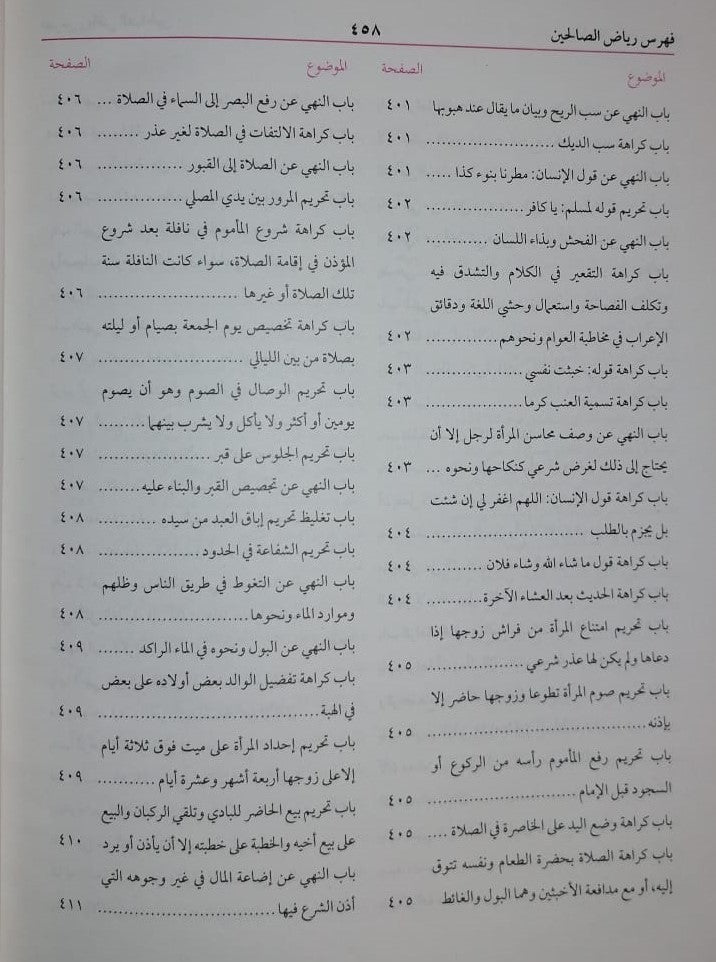 فهرس رياض الصالحين
٤٥٨
الموضوع الصفحة
باب النهي عن سب الريح وبيان ما يقال عند هبوبها ٤٠١
باب كراهة سب الديك ......................... ٤٠١
باب النهي عن قول الإنسان: مطرنا بنوء كذا ..... ٤٠١
باب تحريم قوله لمسلم: يا كافر ................... ٤٠٢
باب النهي عن الفحش وبذاء اللسان ............ ٤٠٢
باب كراهة التقعير في الكلام والتشدق فيه
وتكلف الفصاحة واستعمال وحشي اللغة ودقائق
الإعراب في مخاطبة العوام ونحوهم .............. ٤٠٢
باب كراهة قوله: خبثت نفسي ................... ٤٠٣
باب كراهة تسمية العنب كرما ................... ٤٠٣
باب النهي عن وصف محاسن المرأة لرجل إلا أن
يحتاج إلى ذلك لغرض شرعي كنكاحها ونحوه ... ٤٠٣
باب كراهة قول الإنسان: اللهم اغفر لي إن شئت
بل يجزم بالطلب ............................... ٤٠٤
باب كراهة قول ما شاء الله وشاء فلان ............ ٤٠٤
باب كراهة الحديث بعد العشاء الآخرة ........... ٤٠٤
باب تحريم امتناع المرأة من فراش زوجها إذا
دعاها ولم يكن لها عذر شرعي ................... ٤٠٥
باب تحريم صوم المرأة تطوعا وزوجها حاضر إلا
بإذنه ........................................ ٤٠٥
باب تحريم رفع المأموم رأسه من الركوع أو
السجود قبل الإمام ............................. ٤٠٥
باب كراهة وضع اليد على الخاصرة في الصلاة .... ٤٠٥
باب كراهة الصلاة بحضرة الطعام ونفسه تتوق
إليه، أو مع مدافعة الأخبثين وهما البول والغائط ٤٠٥
الموضوع الصفحة
باب النهي عن رفع البصر إلى السماء في الصلاة ... ٤٠٦
باب كراهة الالتفات في الصلاة لغير عذر ........ ٤٠٦
باب النهي عن الصلاة إلى القبور ................ ٤٠٦
باب تحريم المرور بين يدي المصلي ................ ٤٠٦
باب كراهة شروع المأموم في نافلة بعد شروع
المؤذن في إقامة الصلاة، سواء كانت النافلة سنة
تلك الصلاة أو غيرها ........................... ٤٠٦
باب كراهة تخصيص يوم الجمعة بصيام أو ليلته
بصلاة من بين الليالي ........................... ٤٠٧
باب تحريم الوصال في الصوم وهو أن يصوم
يومين أو أكثر ولا يأكل ولا يشرب بينهما ......... ٤٠٧
باب تحريم الجلوس على قبر ..................... ٤٠٧
باب النهي عن تجصيص القبر والبناء عليه ........ ٤٠٧
باب تغليظ تحريم إباق العبد من سيده ........... ٤٠٨
باب تحريم الشفاعة في الحدود ................... ٤٠٨
باب النهي عن التغوط في طريق الناس وظلهم
وموارد الماء ونحوها ............................ ٤٠٨
باب النهي عن البول ونحوه في الماء الراكد ....... ٤٠٩
باب كراهة تفضيل الوالد بعض أولاده على بعض
في الهبة ....................................... ٤٠٩
باب تحريم إحداد المرأة على ميت فوق ثلاثة أيام
إلا على زوجها أربعة أشهر وعشرة أيام ........... ٤٠٩
باب تحريم بيع الحاضر للبادي وتلقي الركبان والبيع
على بيع أخيه والخطبة على خطبته إلا أن يأذن أو يرد ٤١٠
باب النهي عن إضاعة المال في غير وجوهه التي
أذن الشرع فيها ................................ ٤١١